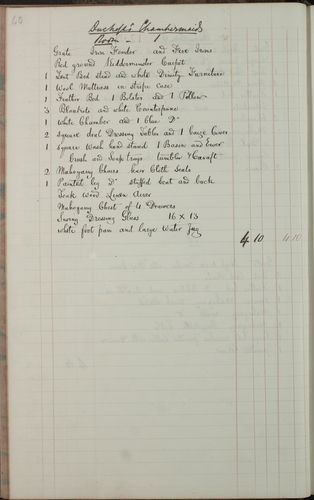 60
Duchess's Chambermaids
Room
Grate Iron Fender and Fire Irons
Red ground Kidderminster Carpet
1 Tent Bed stead and white Dimity Furniture
1 Wool Mattress in stripe case
1 Feather Bed 1 Bolster and 1 Pillow
3 Blankets and white Counterpane
1 white Chamber and 1 blue Do
2 square deal Dressing Tables and 1 large Cover
1 square Wash hand stand 1 Bason and Ewer
brush and Soap trays tumbler & Caraft
2 Mahogany Chairs hair Cloth Seats
1 Painted leg Do stuffed seat and back
Mahogany Chest of 4 Drawers
Swing Dressing Glass 16 x 13
white foot pan and large Water Jug
4 10 4 10